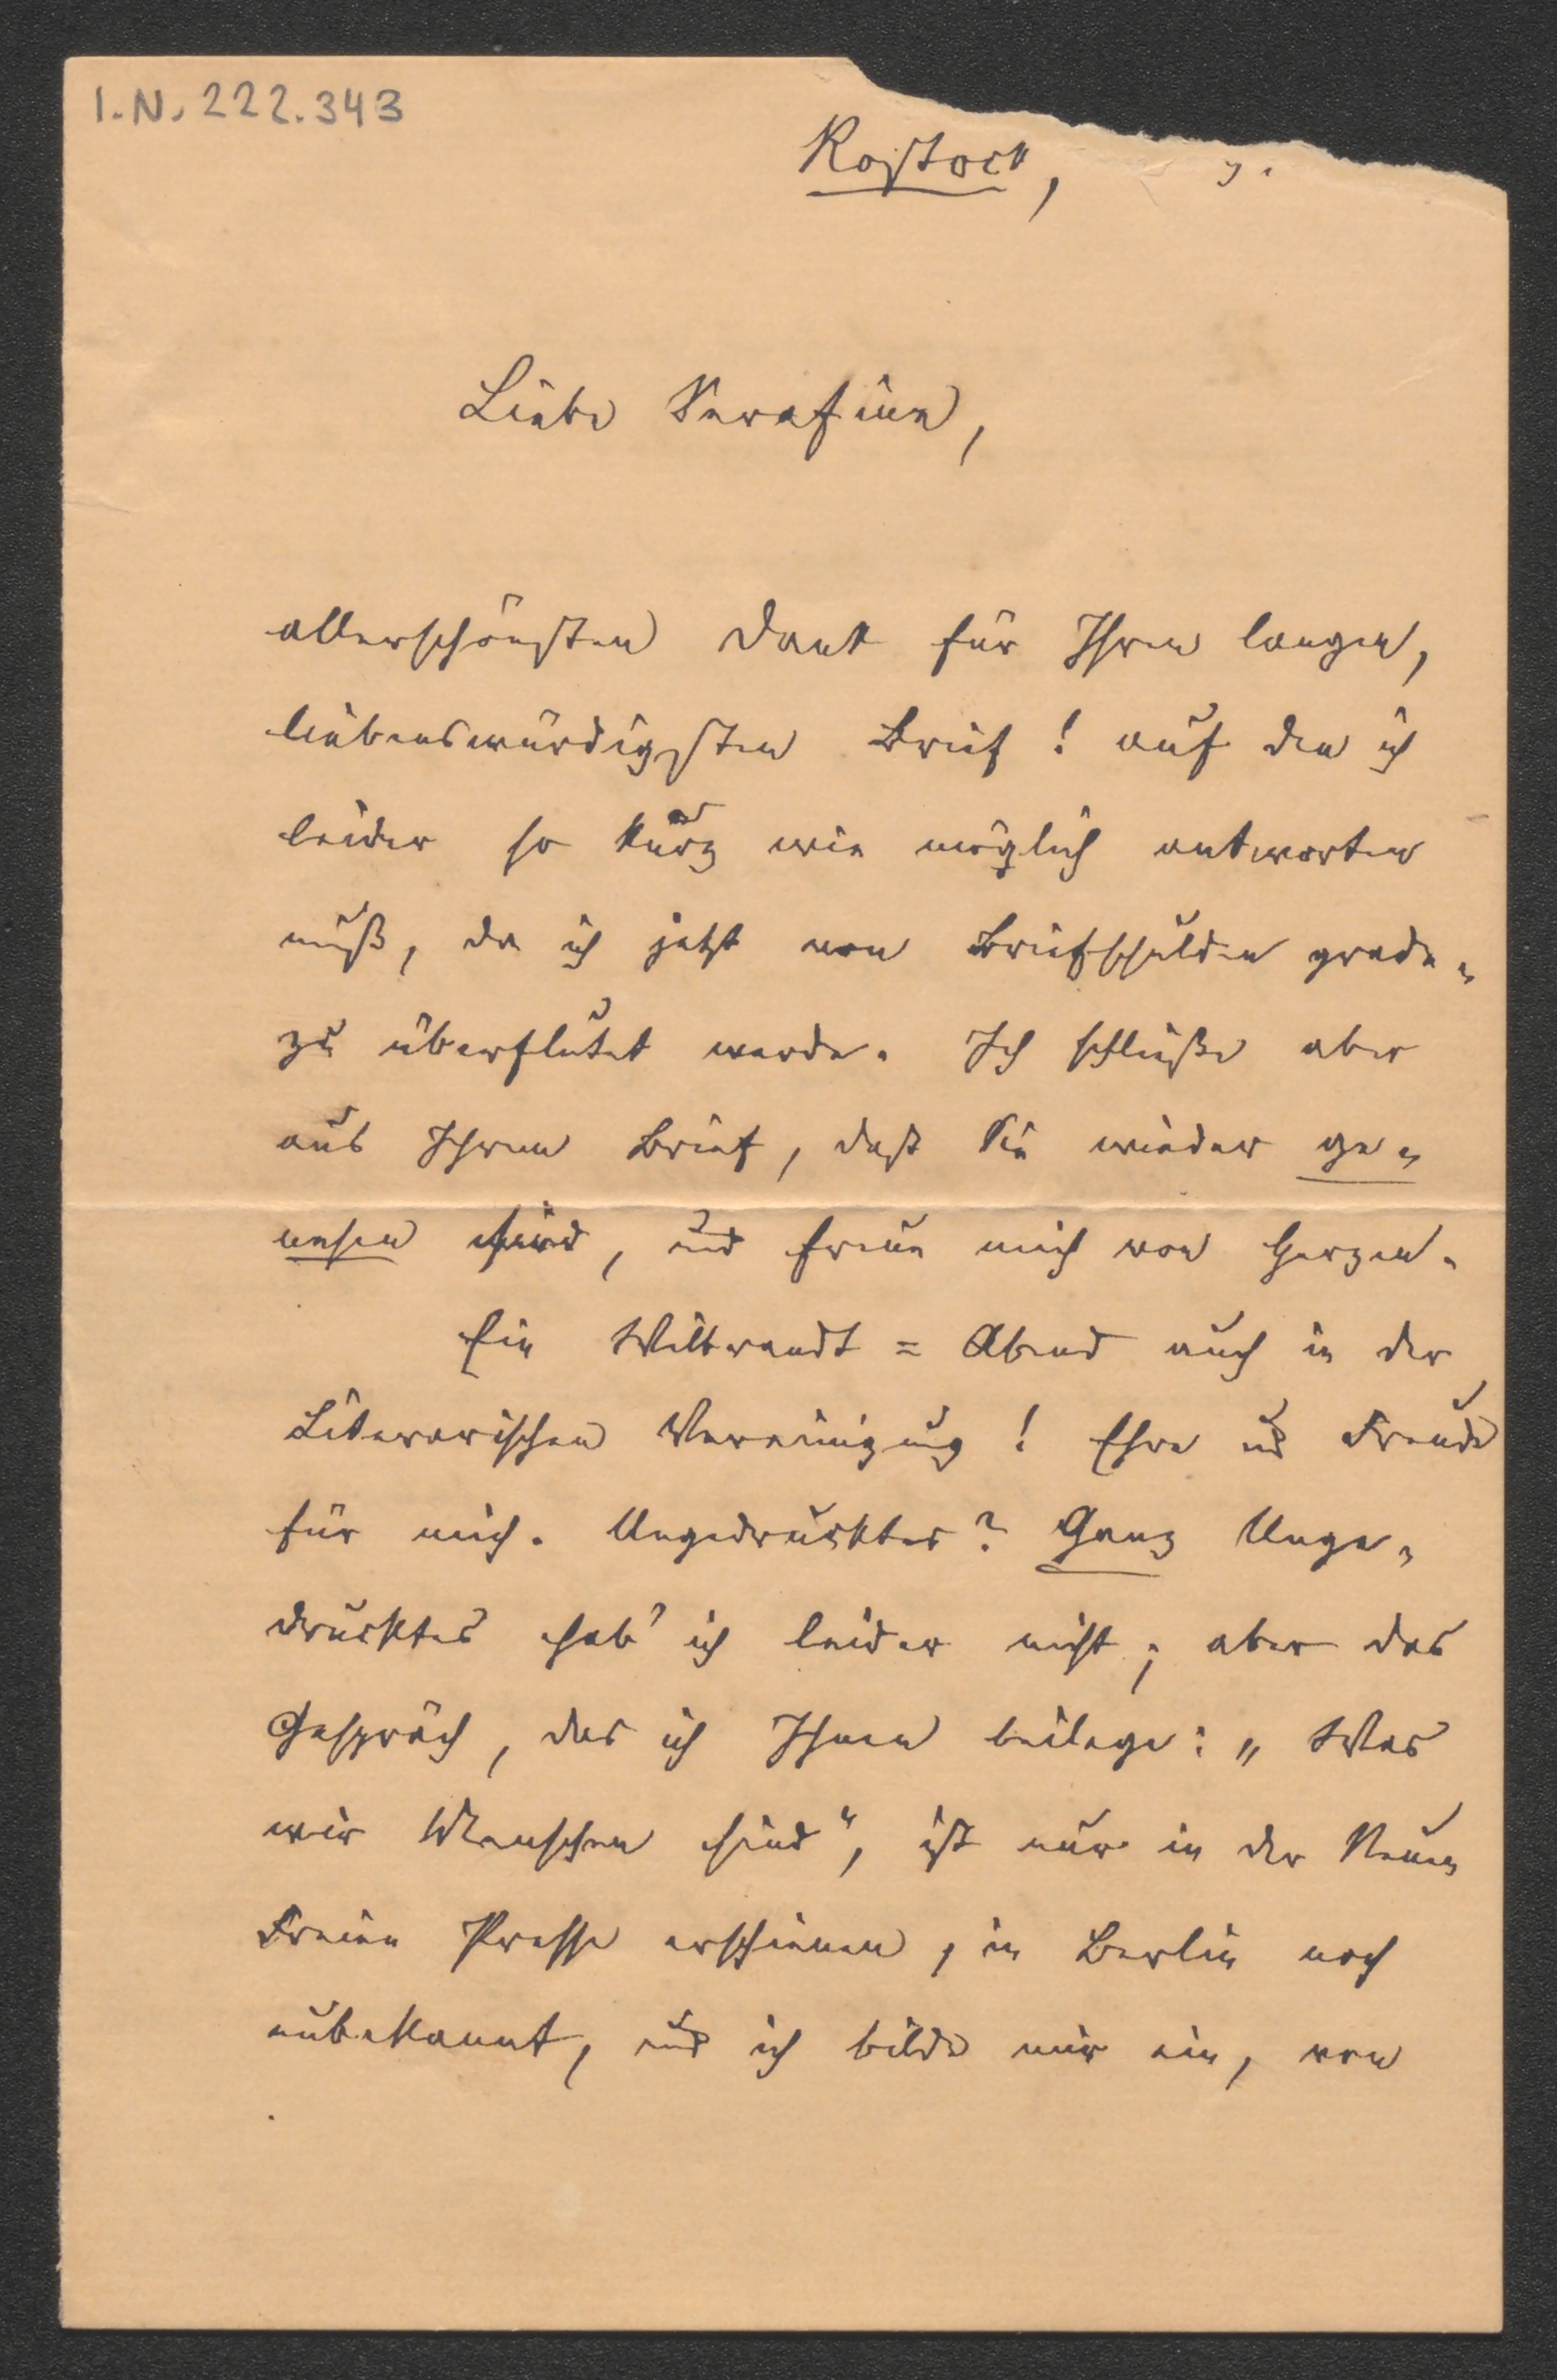 I.N. 222.343
Rostock,
Liebe Serafine,
allerschönsten Dank für Ihren langen,
liebenswürdigsten Brief! auf den ich
leider so kurz wie möglich antworten
muß, da ich jetzt von Briefschulden grade=
zu überflutet werde. Ich schließe aber
aus Ihrem Brief, daß Sie wieder ge=
nesen sind, und freue mich von Herzen.
Ein Wilbrandt=Abend auch in der
Literarischen Vereinigung! Ehre und Freude
für mich. Ungedrucktes? Ganz Unge=
drucktes hab' ich leider nicht; aber das
Gespräch, das ich Ihnen beilege: „Was
wir Menschen sind“, ist nur in der Neuen
Freien Presse erschienen, in Berlin noch
unbekannt, und ich bilde mir ein, von